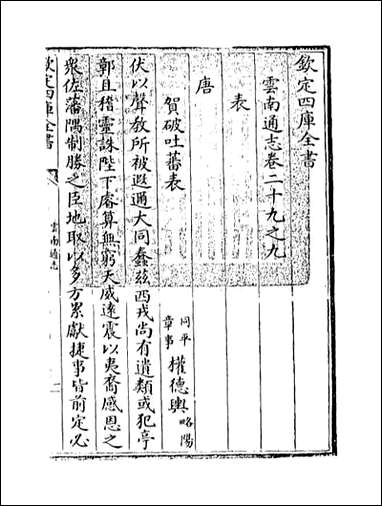 欽定四庫全書
雲南通志卷二十九之九
表
唐
賀破吐蕃表
同平章事 權德輿 略陽
伏以聲教所被遐邇大同蠢兹西戎尚有遺類或犯亭
鄣且稽靈誅陛下睿算無窮天威逺震以夷裔感恩之
衆佐藩隅制勝之臣地取以多方累獻捷事皆前定必
欽定四庫全書
雲南通志